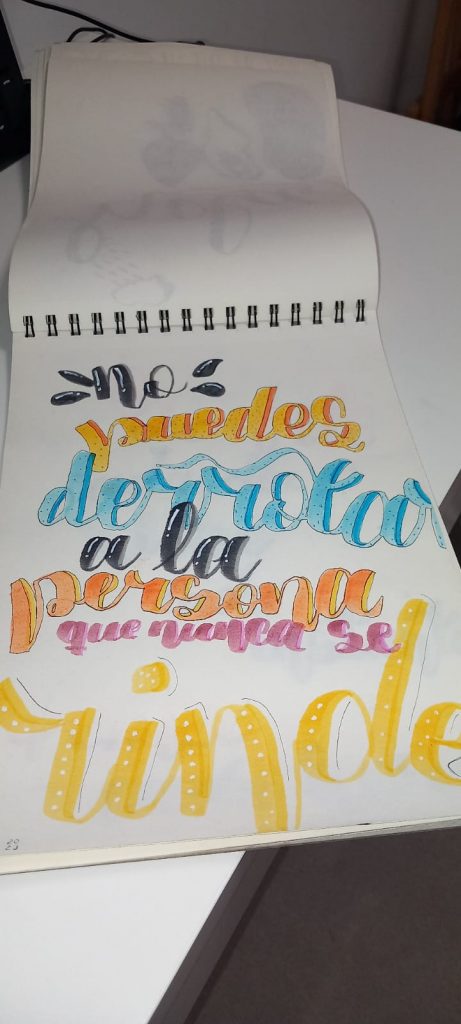 no
puedes
derrotar
a la
persona
que nunca se
rinde